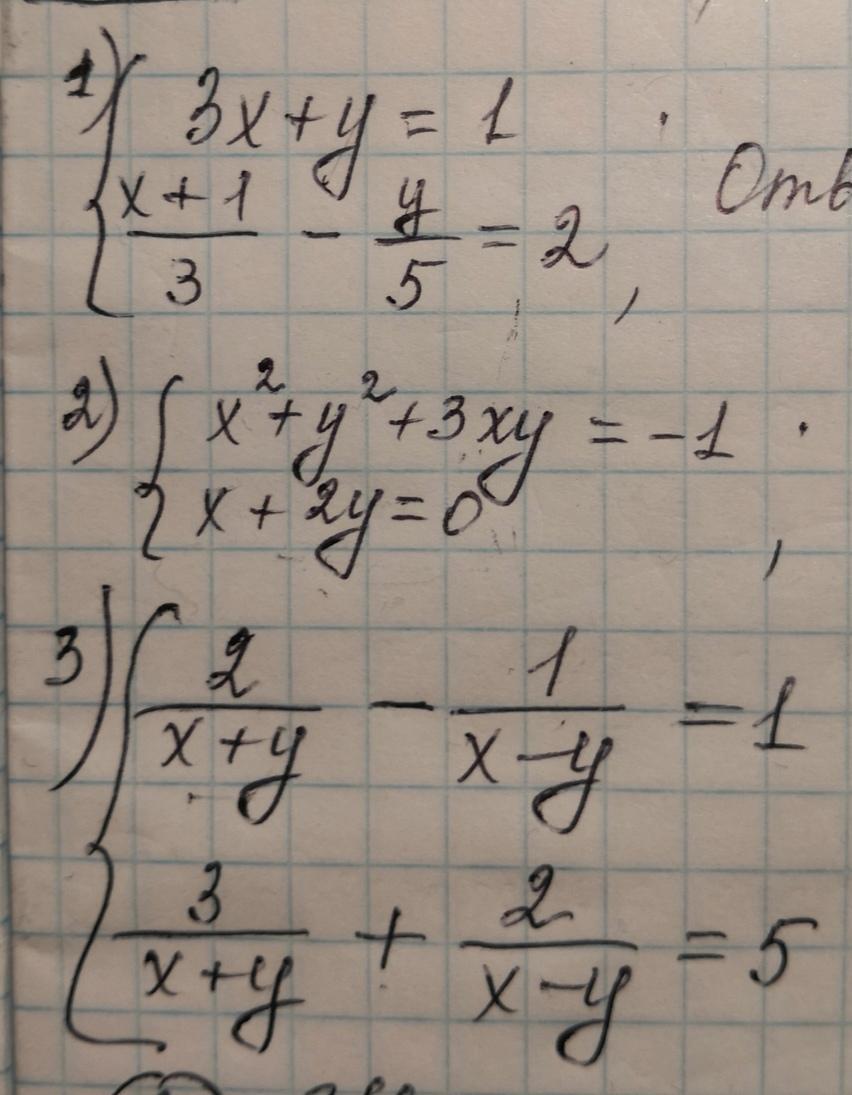 1) { 3x + y = 1
(x + 1)/3 - y/5 = 2,
Отв
2) { x² + y² + 3xy = -1
x + 2y = 0
,
3) { 2/(x + y) - 1/(x - y) = 1
3/(x + y) + 2/(x - y) = 5